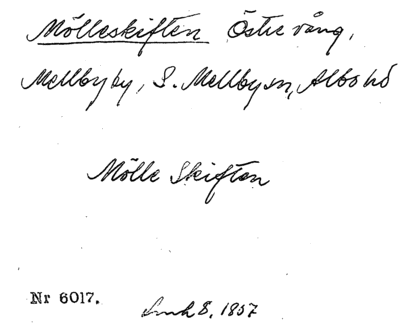 Mölleskiften Östre vång,
Mellby by, S. Mellby sn, Albo hd
Mölle Skiften
Nr 6017.
8, 1857